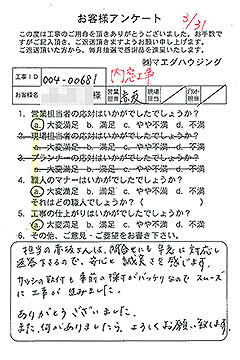 お客様アンケート
3/31
この度は工事のご用命を頂きありがとうございました。お手数で
すがご記入頂き、ご返送頂きますようお願い申し上げます。
ご返送頂いた方から、毎月抽選で感謝品を進呈いたします。
㈱マエダハウジング
工事ID 004-00681 内窓工事
お客様名 様 営業担当 赤坂
1. 営業担当者の応対はいかがでしたでしょうか?
a. 大変満足 b. 満足 c. やや不満 d. 不満
2. 現場担当者の応対はいかがでしたでしょうか?
a. 大変満足 b. 満足 c. やや不満 d. 不満
3. プランナーの応対はいかがでしたでしょうか?
a. 大変満足 b. 満足 c. やや不満 d. 不満
4. 職人のマナーはいかがでしたでしょうか?
a. 大変満足 b. 満足 c. やや不満 d. 不満
それはどの職人でしょうか?( )
5. 工事の仕上がりはいかがでしたでしょうか?
a. 大変満足 b. 満足 c. やや不満 d. 不満
6. その他、ご意見・ご要望をお書き下さい。
担当の赤坂さんは、問合せにも早急に対応し
返答するので、安心と誠実さを感じます。
サッシの取付も事前の採寸がバッチリなのでスムーズ
に工事が進みました。
ありがとうございました。
また、何かありましたら、よろしくお願い致します。